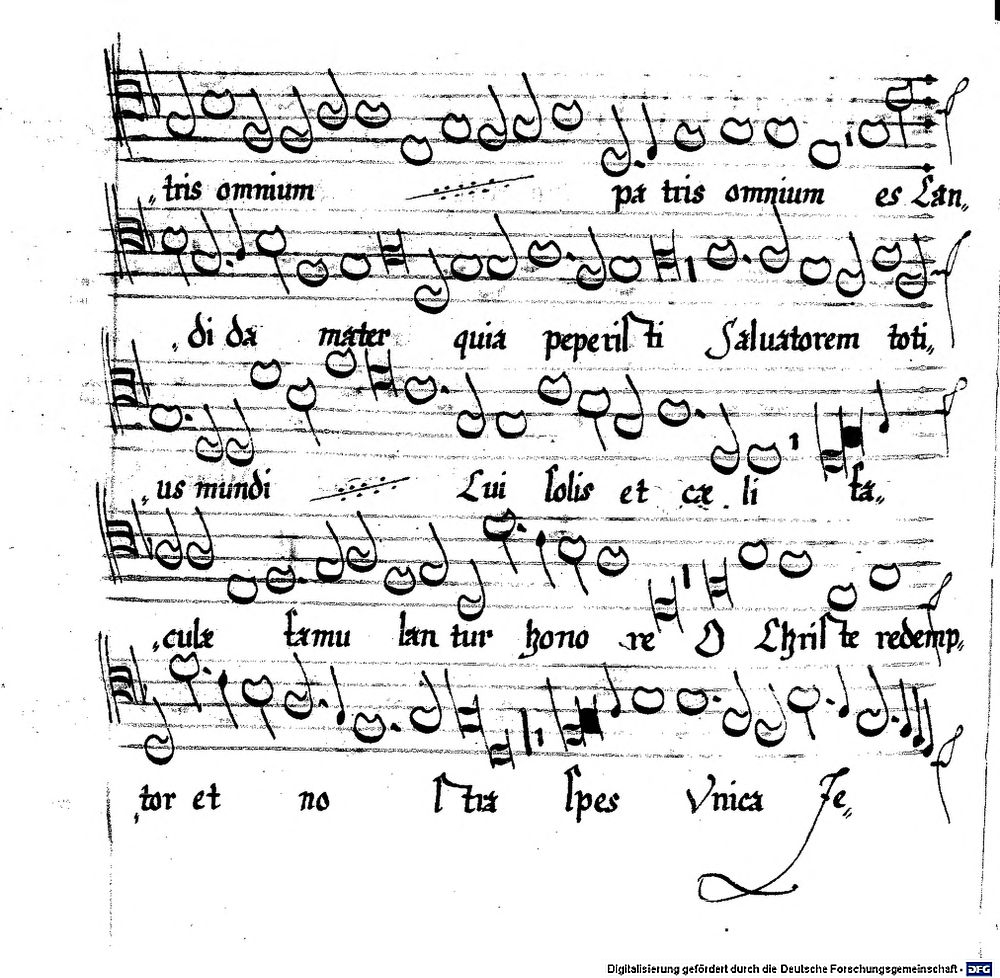 tris omnium pa tris omnium es Can„
di da mater quia peperiſ ti Saluatorem toti„
us mundi Cui ſolis et cæ li fa„
culæ famu lan tur hono re O Chriſ te redemp„
tor et no ſ tra ſpes Vnica Je„
Digitalisierung gefördert durch die Deutsche Forschungsgemeinschaft - DFG